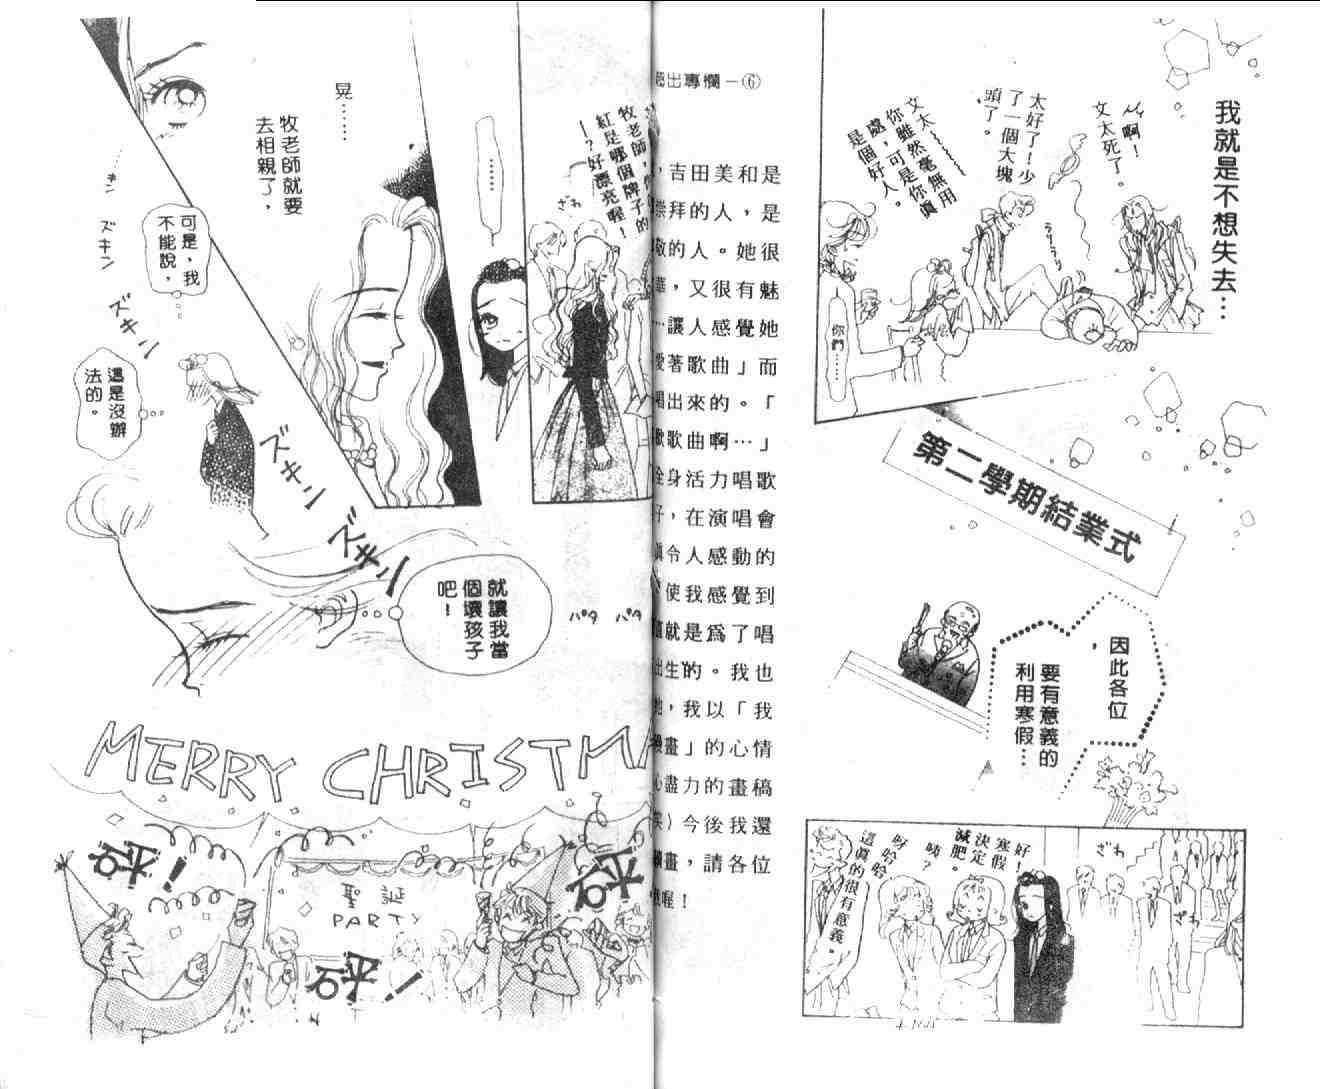 我就是不想失去…
啊！
文太死了。
太好了！少
了一個大塊
頭了。
文太
你雖然毫無用
處，可是你真
是個好人。
ラリラリ
你們………
第二學期結業式
因此各位
，
要有意義的
利用寒假…
ざわ
ざわ
好！
寒假
決定
減肥。
咦？
呀哈哈
這真的很有意義。
出專欄－⑥
，吉田美和是
崇拜的人，是
敬的人。她很
，又很有魅
…讓人感覺她
愛著歌曲」而
唱出來的。「
歡歌曲啊…」
全身活力唱歌
子，在演唱會
真令人感動的
使我感覺到
就是為了唱
出生的。我也
，我以「我
畫」的心情
心盡力的畫稿
）今後我還
畫，請各位
喔！
牧老師，
紅是哪個牌子的
！？好漂亮喔！
ざわ
……
晃……
牧老師就要
去相親了，
キン
ズキン
ズキン
可是，我
不能說，
這是沒辦
法的。
ズキン
ズキン
就讓我當
個壞孩子
吧！
パタ パタ
MERRY CHRISTMA
聖誕
PARTY